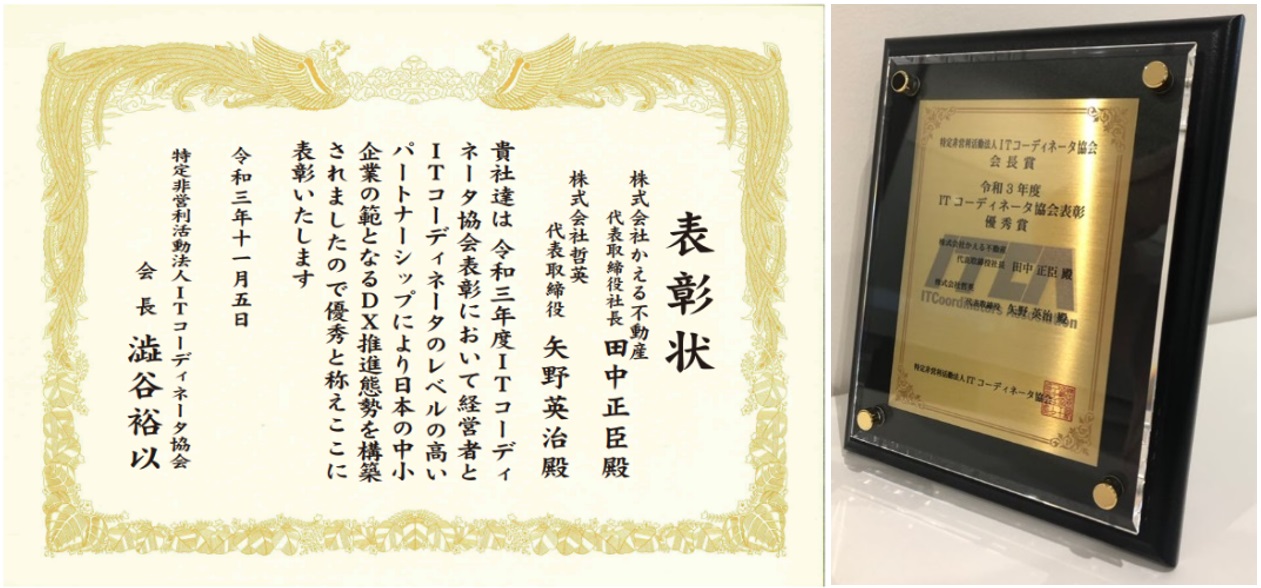 表彰状
株式会社かえる不動産
代表取締役社長 田中正臣殿
株式会社哲英
代表取締役 矢野英治殿
貴社達は 令和三年度ITコーディ
ネータ協会表彰において経営者と
ITコーディネータのレベルの高い
パートナーシップにより日本の中小
企業の範となるDX推進態勢を構築
されましたので優秀と称えここに
表彰いたします
令和三年十一月五日
特定非営利活動法人ITコーディネータ協会
会長 澁谷裕以
特定非営利活動法人ITコーディネータ協会
会長賞
令和3年度
ITコーディネータ協会表彰
優秀賞
株式会社かえる不動産
代表取締役社長 田中 正臣 殿
株式会社哲英
代表取締役 矢野 英治 殿
ITCA
ITCoordinators Association
特定非営利活動法人ITコーディネータ協会